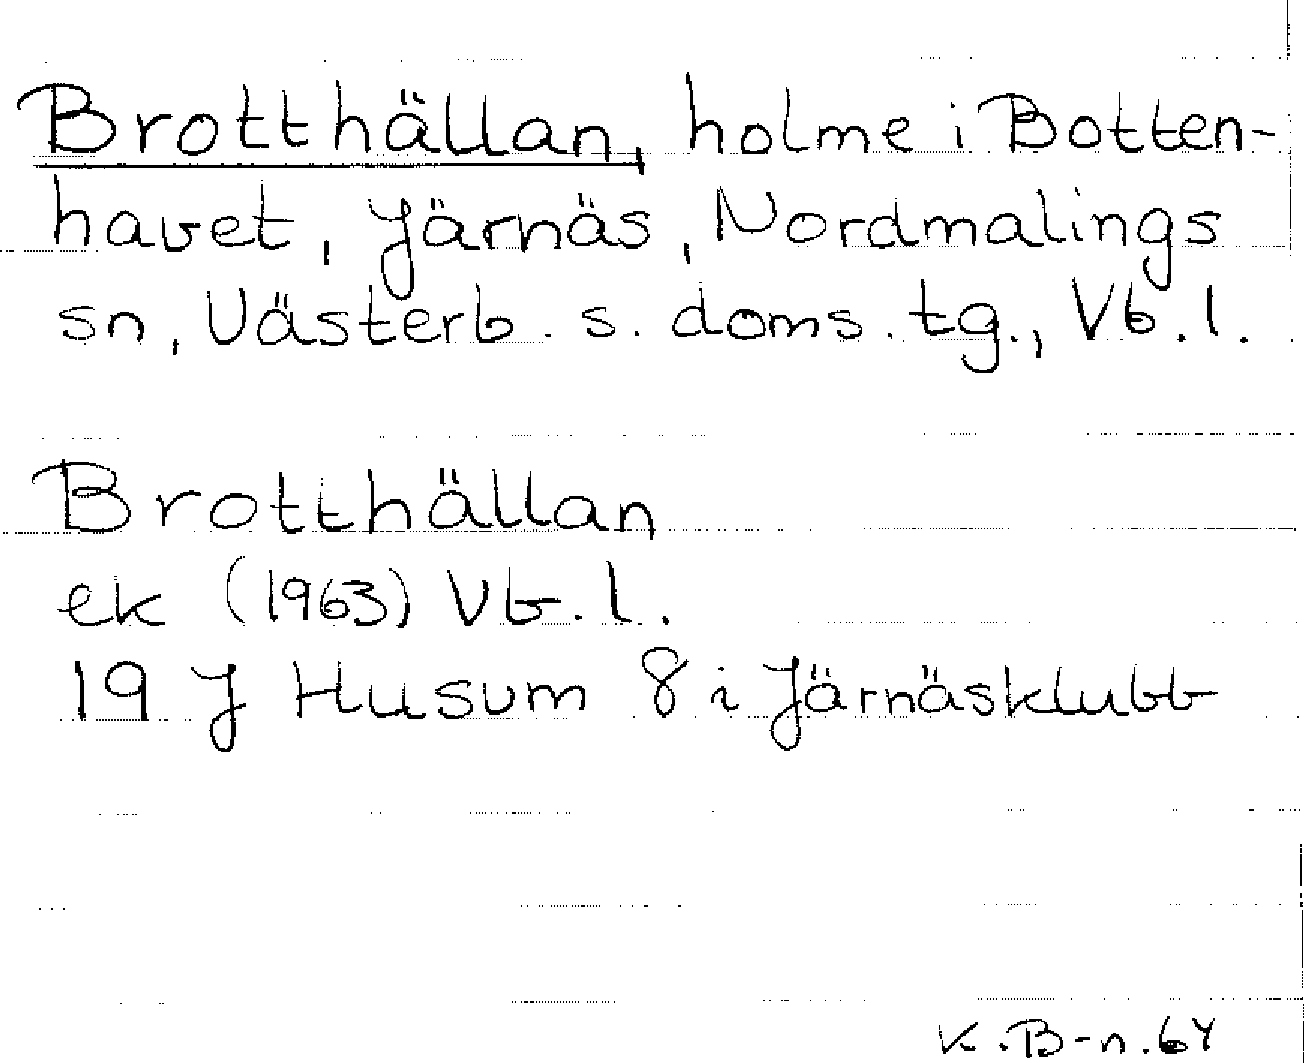 Brotthällan, holme i Botten-
havet, Järnäs, Nordmalings
sn, Västerb. s. doms. tg., Vb. l.
Brotthällan
ek (1963) Vb. l.
19 J Husum 8 i Järnäsklubb
K. B-n. 64